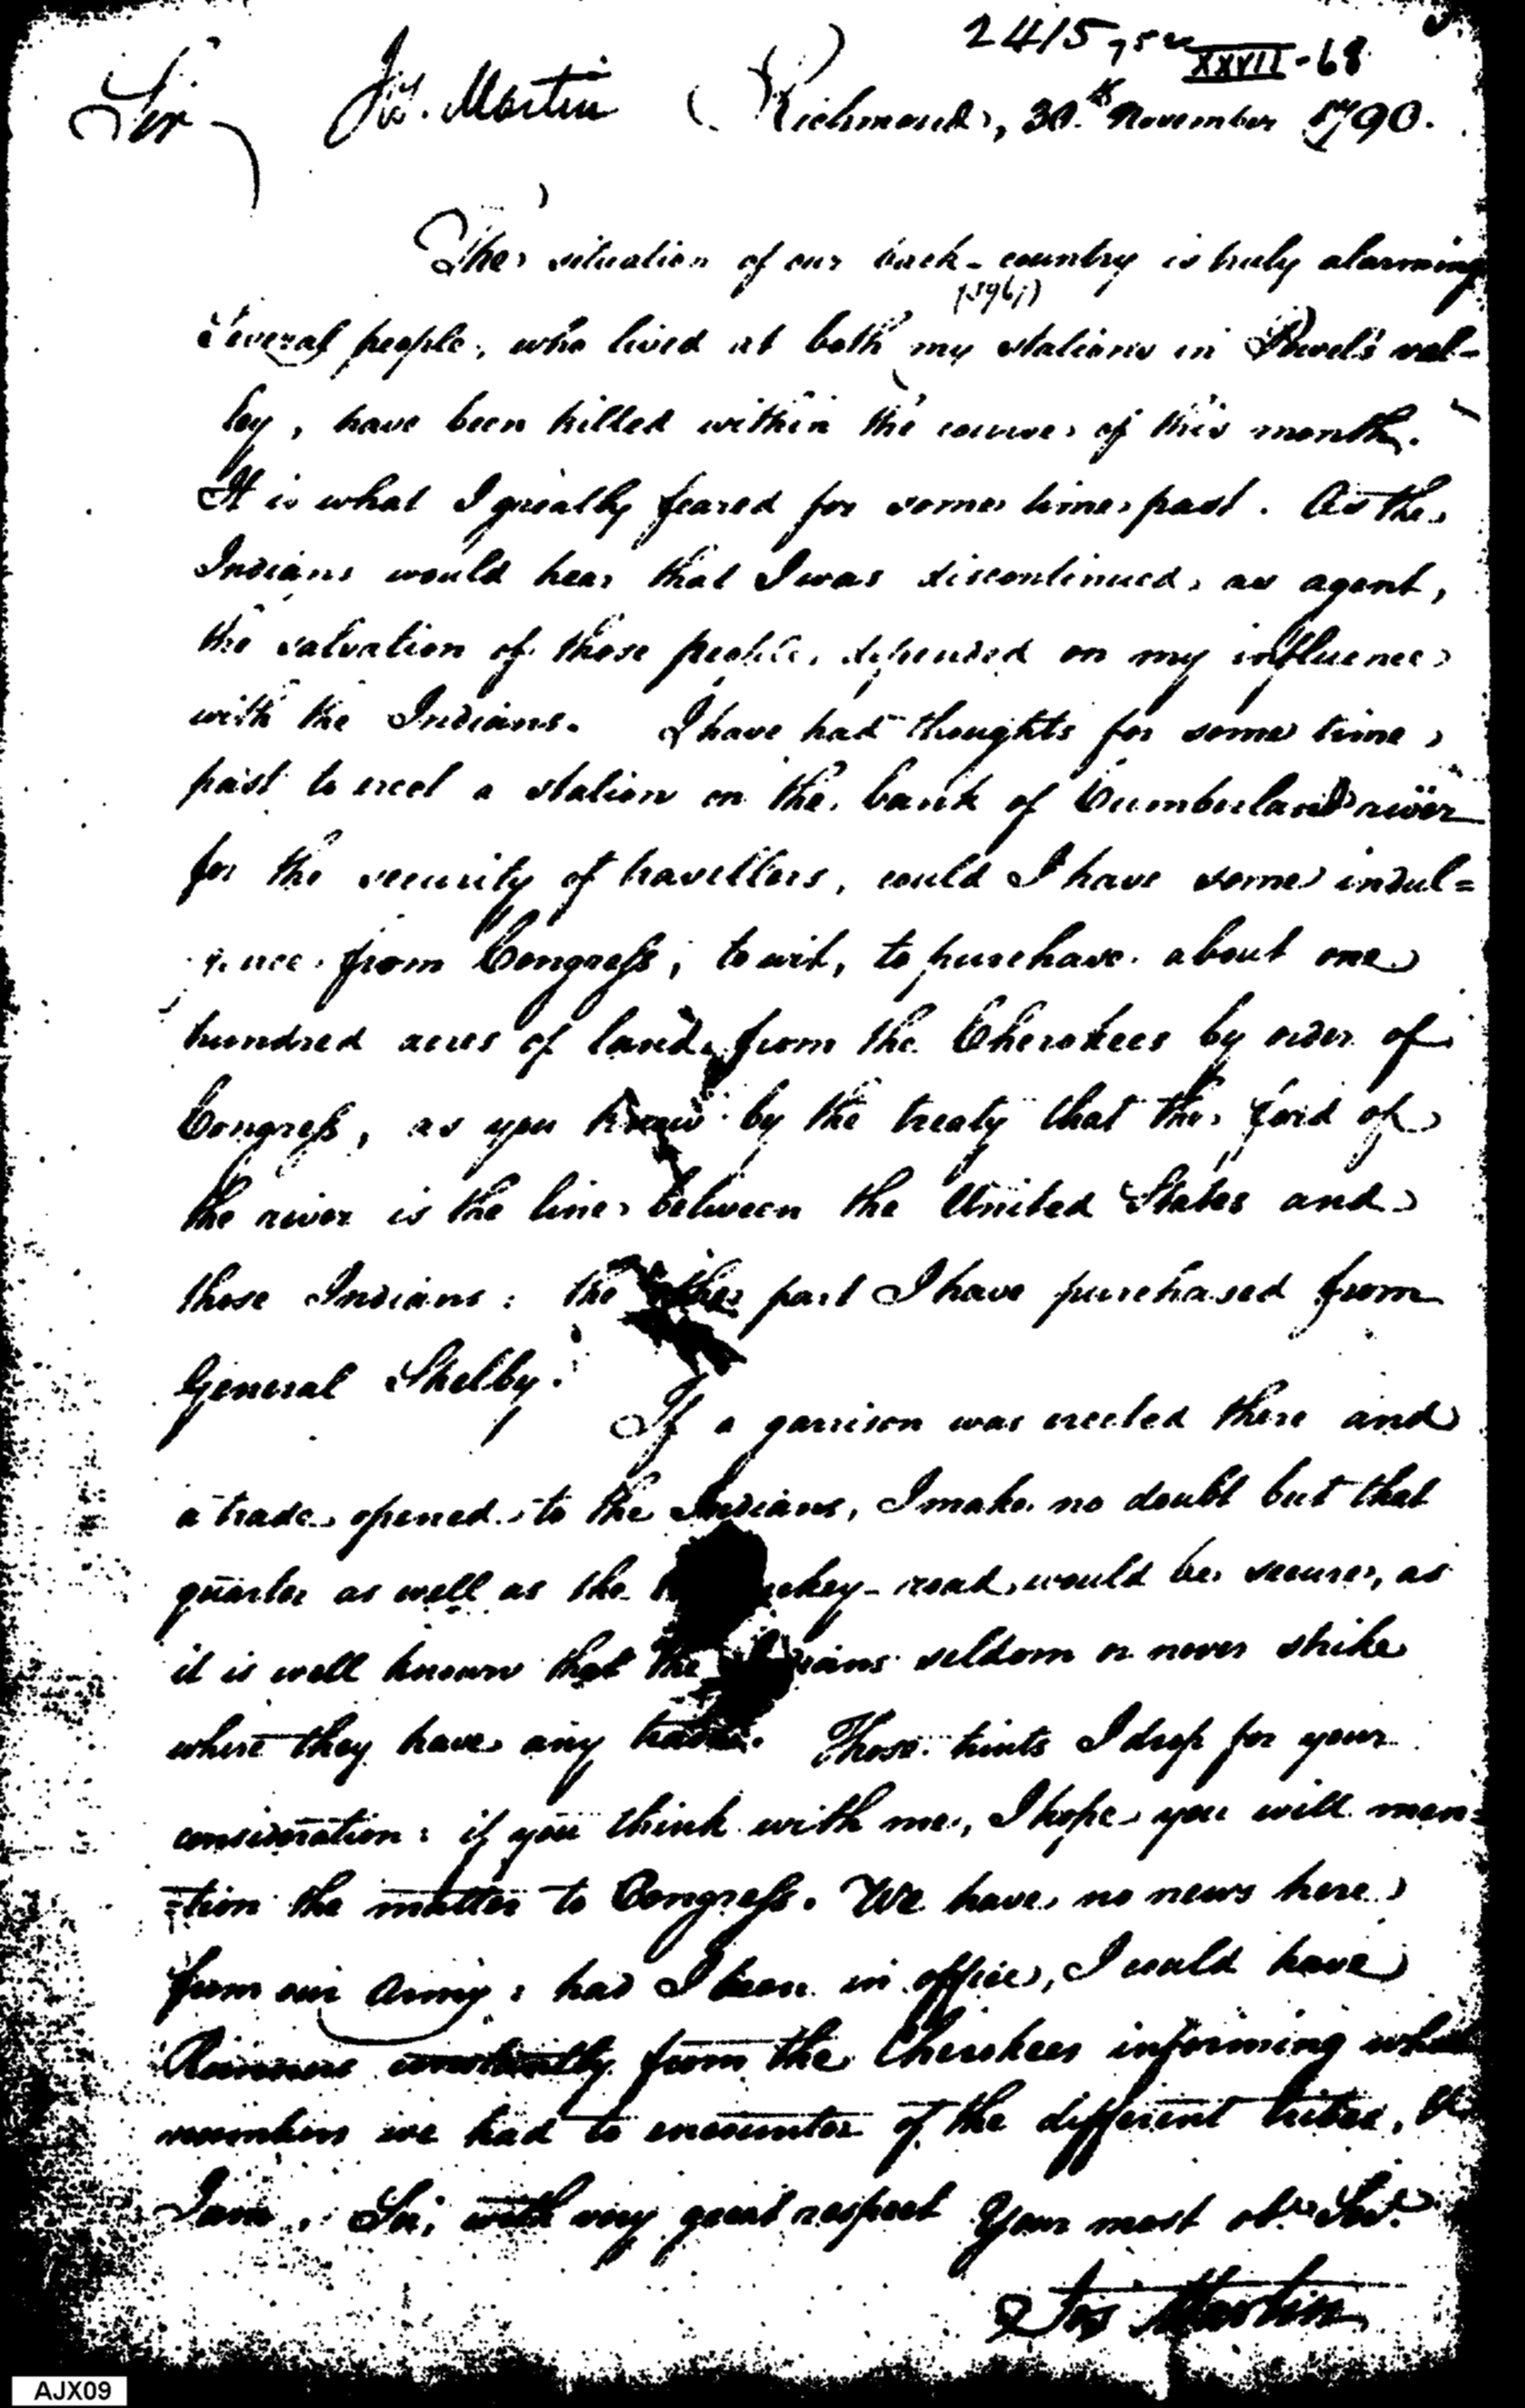 2415, 75
XXVII-68
Sir, Jos. Martin (Richmond, 30th November 1790.
The situation of our back-country is truly alarming
Several people, who lived at both my stations in Powel's val-
ley, have been killed within the course of this month.
It is what I greatly feared for some time past. As the
Indians would hear that I was discontinued, as agent,
the salvation of those people, depended on my influence
with the Indians. I have had thoughts for some time
past to erect a station on the bank of Cumberland river
for the security of travellers, could I have some indul=
gence from Congress, to wit, to purchase about one
hundred acres of land, from the Cherokees by order of
Congress, as you know by the treaty that the ford of
the river is the line between the United States and
those Indians: the other part I have purchased from
General Shelby.
If a garrison was erected there and
a trade opened to the Indians, I make no doubt but that
quarter as well as the -road, would be secure, as
it is well known that the Indians seldom or never strike
where they have any trade. Those hints I drop for your
consideration: if you think with me, I hope you will men=
=tion the matter to Congress. We have no news here
from our Army: had I been in office, I would have
Runners constantly from the Cherokees informing what
numbers we had to encounter of the different tribes, &c
I am, Sir, with very great respect Your most obt. Svt.
Jos Martin
AJX09